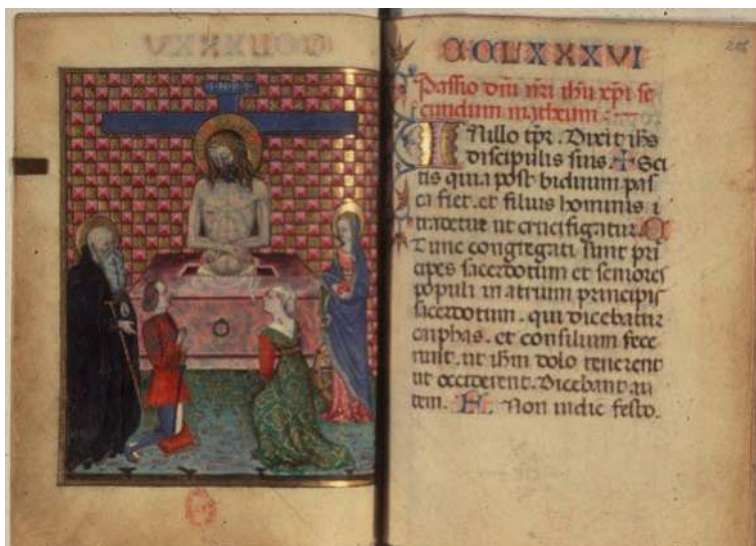 I·N·R·I
CCLXXXVI
Passio dñi nri ihu xpi se
cundum matheum
IN illo tpr. Dixit ihs
discipulis suis. + Sci
tis quia post biduum pas
ca fiet. et filius hominis
tradetur ut crucifigatur.
Tunc congregati sunt pri
cipes sacerdotum et seniores
populi in atrium principis
sacerdotum. qui dicebatur
cayphas. et consilium fece
runt. ut ihm dolo tenerent
et occiderent. Dicebant au
tem. Non in die festo.